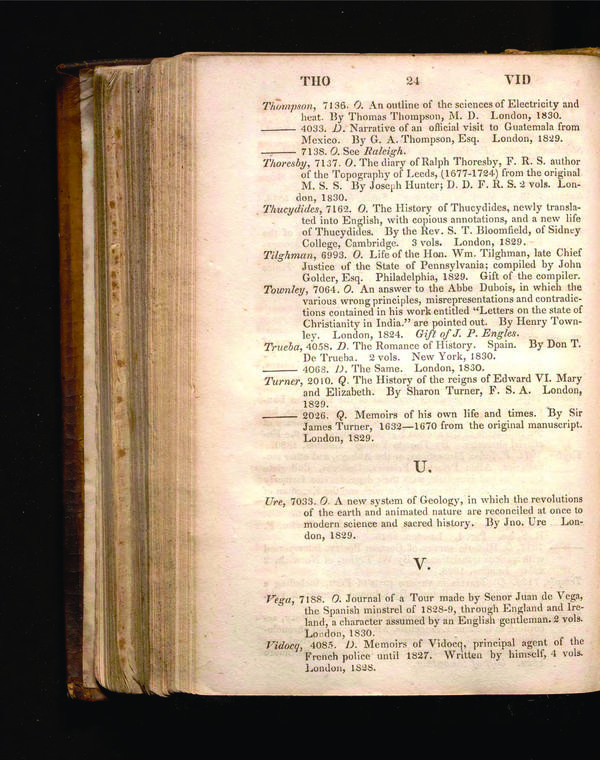 THO 24 VID
Thompson, 7136. O. An outline of the sciences of Electricity and
heat. By Thomas Thompson, M. D. London, 1830.
——— 4033. D. Narrative of an official visit to Guatemala from
Mexico. By G. A. Thompson, Esq. London, 1829.
——— 7138. O. See Raleigh.
Thoresby, 7137. O. The diary of Ralph Thoresby, F. R. S. author
of the Topography of Leeds, (1677-1724) from the original
M. S. S. By Joseph Hunter; D. D. F. R. S. 2 vols. Lon-
don, 1830.
Thucydides, 7162. O. The History of Thucydides, newly transla-
ted into English, with copious annotations, and a new life
of Thucydides. By the Rev. S. T. Bloomfield, of Sidney
College, Cambridge. 3 vols. London, 1829.
Tilghman, 6993. O. Life of the Hon. Wm. Tilghman, late Chief
Justice of the State of Pennsylvania; compiled by John
Golder, Esq. Philadelphia, 1829. Gift of the compiler.
Townley, 7064. O. An answer to the Abbe Dubois, in which the
various wrong principles, misrepresentations and contradic-
tions contained in his work entitled “Letters on the state of
Christianity in India.” are pointed out. By Henry Town-
ley. London, 1824. Gift of J. P. Engles.
Trueba, 4058. D. The Romance of History. Spain. By Don T.
De Trueba. 2 vols. New York, 1830.
——— 4068. D. The Same. London, 1830.
Turner, 2010. Q. The History of the reigns of Edward VI. Mary
and Elizabeth. By Sharon Turner, F. S. A. London,
1829.
——— 2026. Q. Memoirs of his own life and times. By Sir
James Turner, 1632—1670 from the original manuscript.
London, 1829.
U.
Ure, 7033. O. A new system of Geology, in which the revolutions
of the earth and animated nature are reconciled at once to
modern science and sacred history. By Jno. Ure Lon-
don, 1829.
V.
Vega, 7188. O. Journal of a Tour made by Senor Juan de Vega,
the Spanish minstrel of 1828-9, through England and Ire-
land, a character assumed by an English gentleman. 2 vols.
London, 1830.
Vidocq, 4085. D. Memoirs of Vidocq, principal agent of the
French police until 1827. Written by himself, 4 vols.
London, 1828.